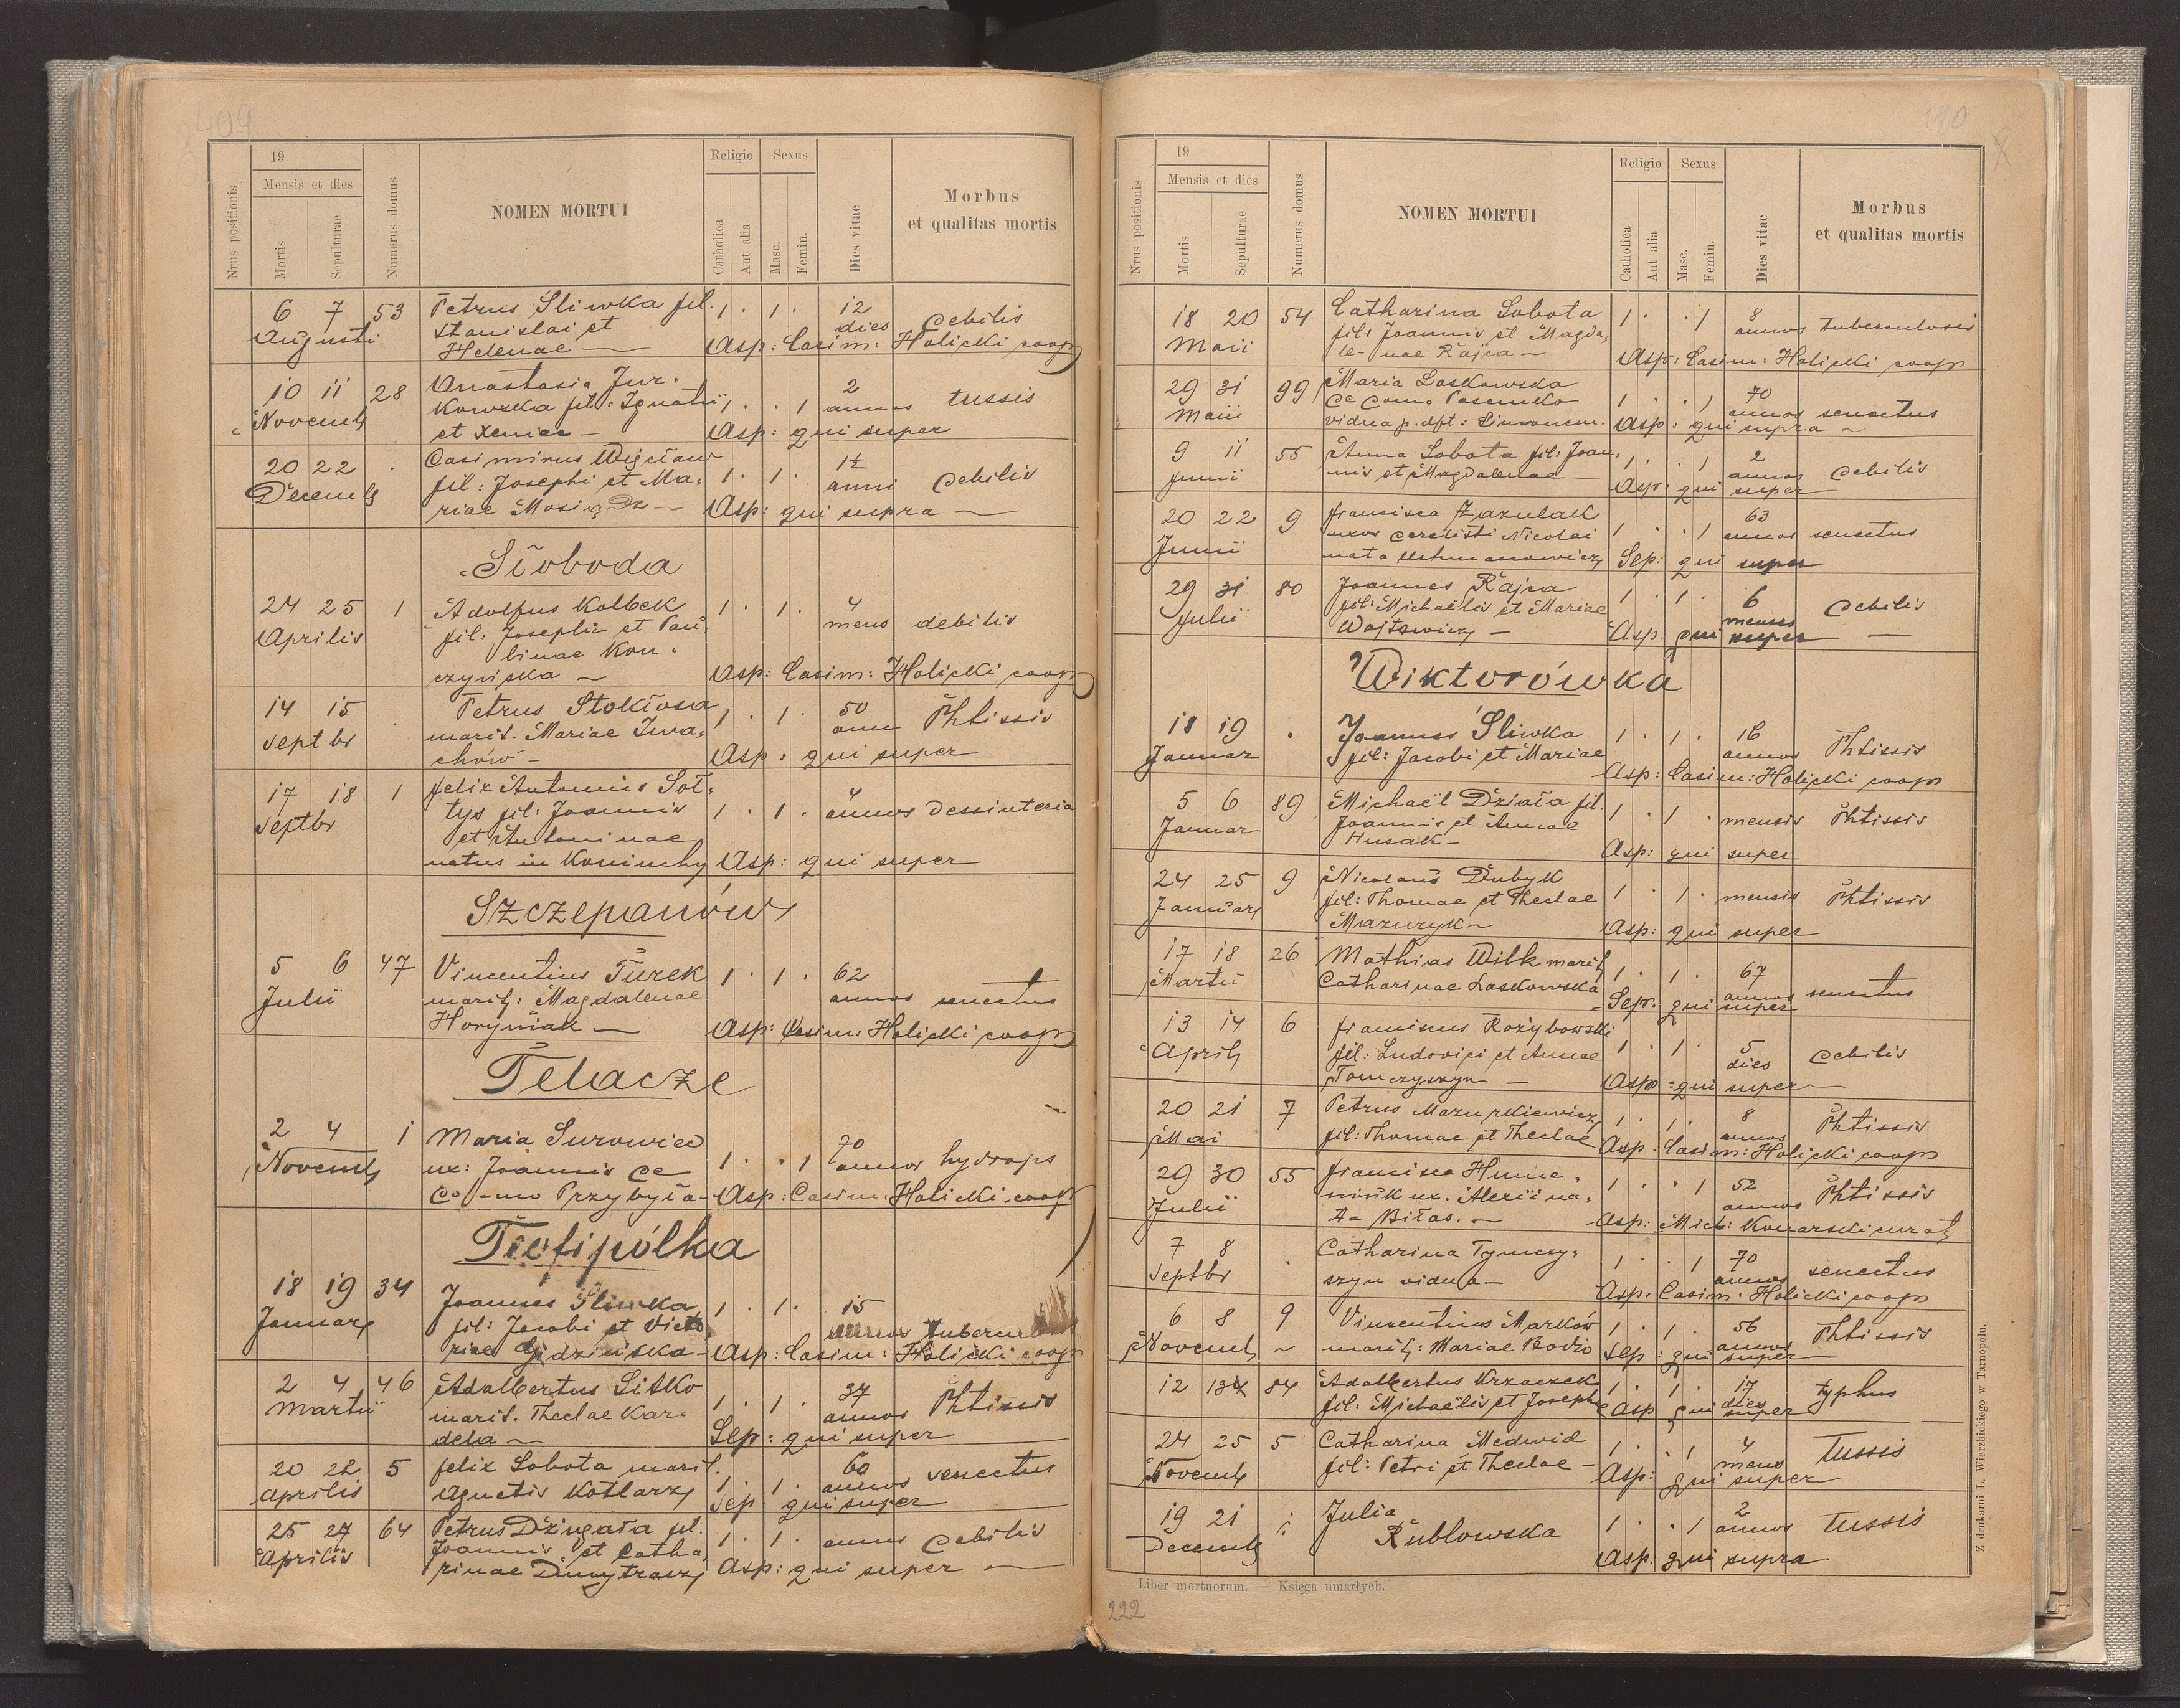 409
19
Mensis et dies
Religio
Sexus
Nrus positionis
Mortis
Sepulturae
Numerus domus
NOMEN MORTUI
Catholica
Aut alia
Masc.
Femin.
Dies vitae
Morbus
et qualitas mortis
6 7 53 Petrus Śliwka fil. 1 · 1 · 12
Augusti Stanislai et dies debilis
Helenae — Asp: Casim: Holicki coop
10 11 28 Anastasia Jur-
Novemb kowska fil: Ignatii 1 · · 1 2 annos tussis
et Xeniae — Asp: qui super
20 22 · Casimirus Węcław
Decemb fil: Josephi et Ma- 1 · 1 · 1½ anni debilis
riae Mosiądz — Asp: qui supra —
Słoboda
24 25 1 Adolfus Kolbek 1 · 1 · 4
Aprilis fil: Josephi et Pau- mens debilis
linae Kon-
czyńska — Asp: Casim: Holicki coop
14 15 · Petrus Stokłosa 1 · 1 · 50
Septbr marit. Mariae Iwa- ann Phtissis
chów — Asp: qui super
17 18 1 Felix Antonius Soł-
Septbr tys fil: Joannis 1 · 1 · 4 annos dessinteria
et Antoninae
natus in Koniuchy Asp: qui super
Szczepanów
5 6 47 Vincentius Turek 1 · 1 · 62
Julii marit: Magdalenae annos senectus
Horyniak — Asp: Casim: Holicki coop
Telacze
2 4 1 Maria Surowiec
Novemb ux: Joannis de 1 · · 1 70 annos hydrops
do-mo Przybyła — Asp: Casim: Holicki coop
Teofipólka
18 19 34 Joannes Śliwka 1 · 1 · 15
Januar fil: Jacobi et Victo- annos tuberculosis
riae — Asp: Casim: Holicki coop
2 4 46 Adalbertus Sitko 37
Martii marit. Theclae Kar- 1 · 1 · annos Phtissis
dela — Sep: qui super
20 22 5 Felix Sobota marit. 60
Aprilis Agnetis Kotlarz 1 · 1 · annos senectus
Sep qui super
25 27 64 Petrus Dżugała fil.
Aprilis Joannis et Catha- 1 · 1 · annus debilis
rinae Dmytrasz Asp: qui super —
110
19
Mensis et dies
Religio
Sexus
Nrus positionis
Mortis
Sepulturae
Numerus domus
NOMEN MORTUI
Catholica
Aut alia
Masc.
Femin.
Dies vitae
Morbus
et qualitas mortis
18 20 54 Catharina Sobota 8
Maii fil: Joannis et Magda- 1 · · 1 annos tuberculosis
le-nae Rajca — Asp: Casim: Holicki coop
29 31 99 Maria Laskowska 70
Maii de domo 1 · · 1 annos senectus
vidua p. dft: Simonem. Asp: qui supra —
9 11 55 Anna Sobota fil: Joan- 2
Junii nis et Magdalenae — 1 · · 1 annos debilis
Asp: qui super
20 22 9 Francisca Zazulak 63
Junii uxor Nicolai 1 · · 1 annos senectus
nata Sep: qui super
29 31 80 Joannes Rajca 6
Julii fil: Michaëlis et Mariae 1 · 1 · menses debilis
Wojtowicz — Asp: qui super —
Wiktorówka
18 19 · Joannes Śliwka 1 · 1 · 16
Januar fil: Jacobi et Mariae annos Phtissis
Asp: Casim: Holicki coop
5 6 89 Michaël Działa fil.
Januar Joannis et Annae 1 · 1 · mensis Phtissis
Husak — Asp: qui super
24 25 9 Nicolaus Dubyk
Januar fil: Thomae et Theclae 1 · 1 · mensis Phtissis
Mazuryk — Asp: qui super
17 18 26 Mathias Wilk marit 67
Martii Catharinae Laskowska 1 · 1 · annos senectus
Sep: qui super
13 14 6 Franciscus Rożybowski
April fil: Ludovici et Annae 1 · 1 · 5 dies debilis
Tomczyszyn — Asp: qui super —
20 21 7 Petrus Mazurkiewicz 1 · 1 · 8
Mai fil: Thomae et Theclae annos Phtissis
Asp. Casim: Holicki coop
29 30 55 Francisca Hume- 52
Julii niuk ux. Alexii na- 1 · · 1 annos Phtissis
ta Biłas. — Asp: Mich: Konarski curat
7 8 · Catharina Tymczy- 70
Septbr szyn vidua — 1 · 1 annos senectus
Asp. Casim: Holicki coop
6 8 9 Vincentius Marków 56
Novemb ~ marit: Mariae Bodio 1 · 1 · annos Phtissis
Sep: qui super
12 13 84 Adalbertus Krzaczek 17
fil: Michaëlis et Josephae 1 · 1 · dies typhus
Asp qui super
24 25 5 Catharina Medwid 4
Novemb fil: Petri et Theclae — 1 · 1 mens Tussis
Asp: qui super
19 21 Julia 2
Decemb Rublowska 1 · · 1 annos tussis
Asp: qui supra
Liber mortuorum. — Księga umarłych.
Z drukarni L. Wierzbickiego w Tarnopolu.
222